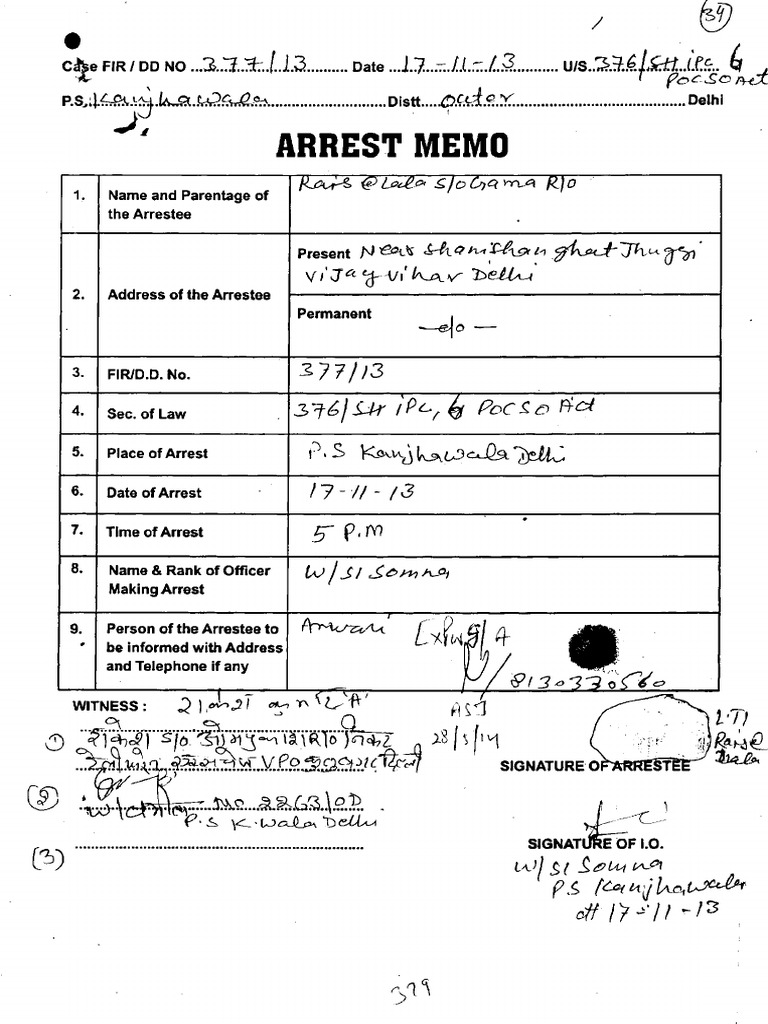 34
Case FIR / DD NO 377/13 Date 17-11-13 U/S 376/511 IPC 6
POCSO Act
P.S. Kanjhawala Distt. outer Delhi
ARREST MEMO
1. Name and Parentage of the Arrestee
Rais @ Lala S/o Gama R/o
2. Address of the Arrestee
Present Near Shamshan ghat Jhuggi
Vijay Vihar Delhi
Permanent
3. FIR/D.D. No. 377/13
4. Sec. of Law 376/511 IPC, 6 POCSO Act
5. Place of Arrest P.S Kanjhawala Delhi
6. Date of Arrest 17-11-13
7. Time of Arrest 5 P.M
8. Name & Rank of Officer Making Arrest
W/SI Somna
9. Person of the Arrestee to be informed with Address and Telephone if any
Anwari A
8130330560
WITNESS : 'A'
28/5/14
① S/o R/o
VPO
L.T.I
Rais @
Lala
SIGNATURE OF ARRESTEE
(2) No 2263/OD
P.S K.Wala Delhi
(3)
SIGNATURE OF I.O.
W/SI Somna
P.S Kanjhawala
dt 17-11-13
379